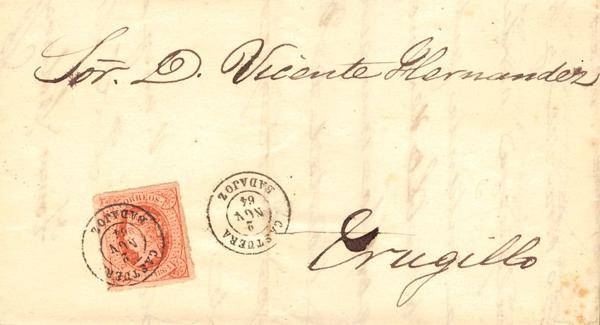 Sör. D. Vicente Hernandez
CORREOS
CASTUERA
2
NOV
64
BADAJOZ
CASTUERA
2
NOV
64
BADAJOZ
Trugillo